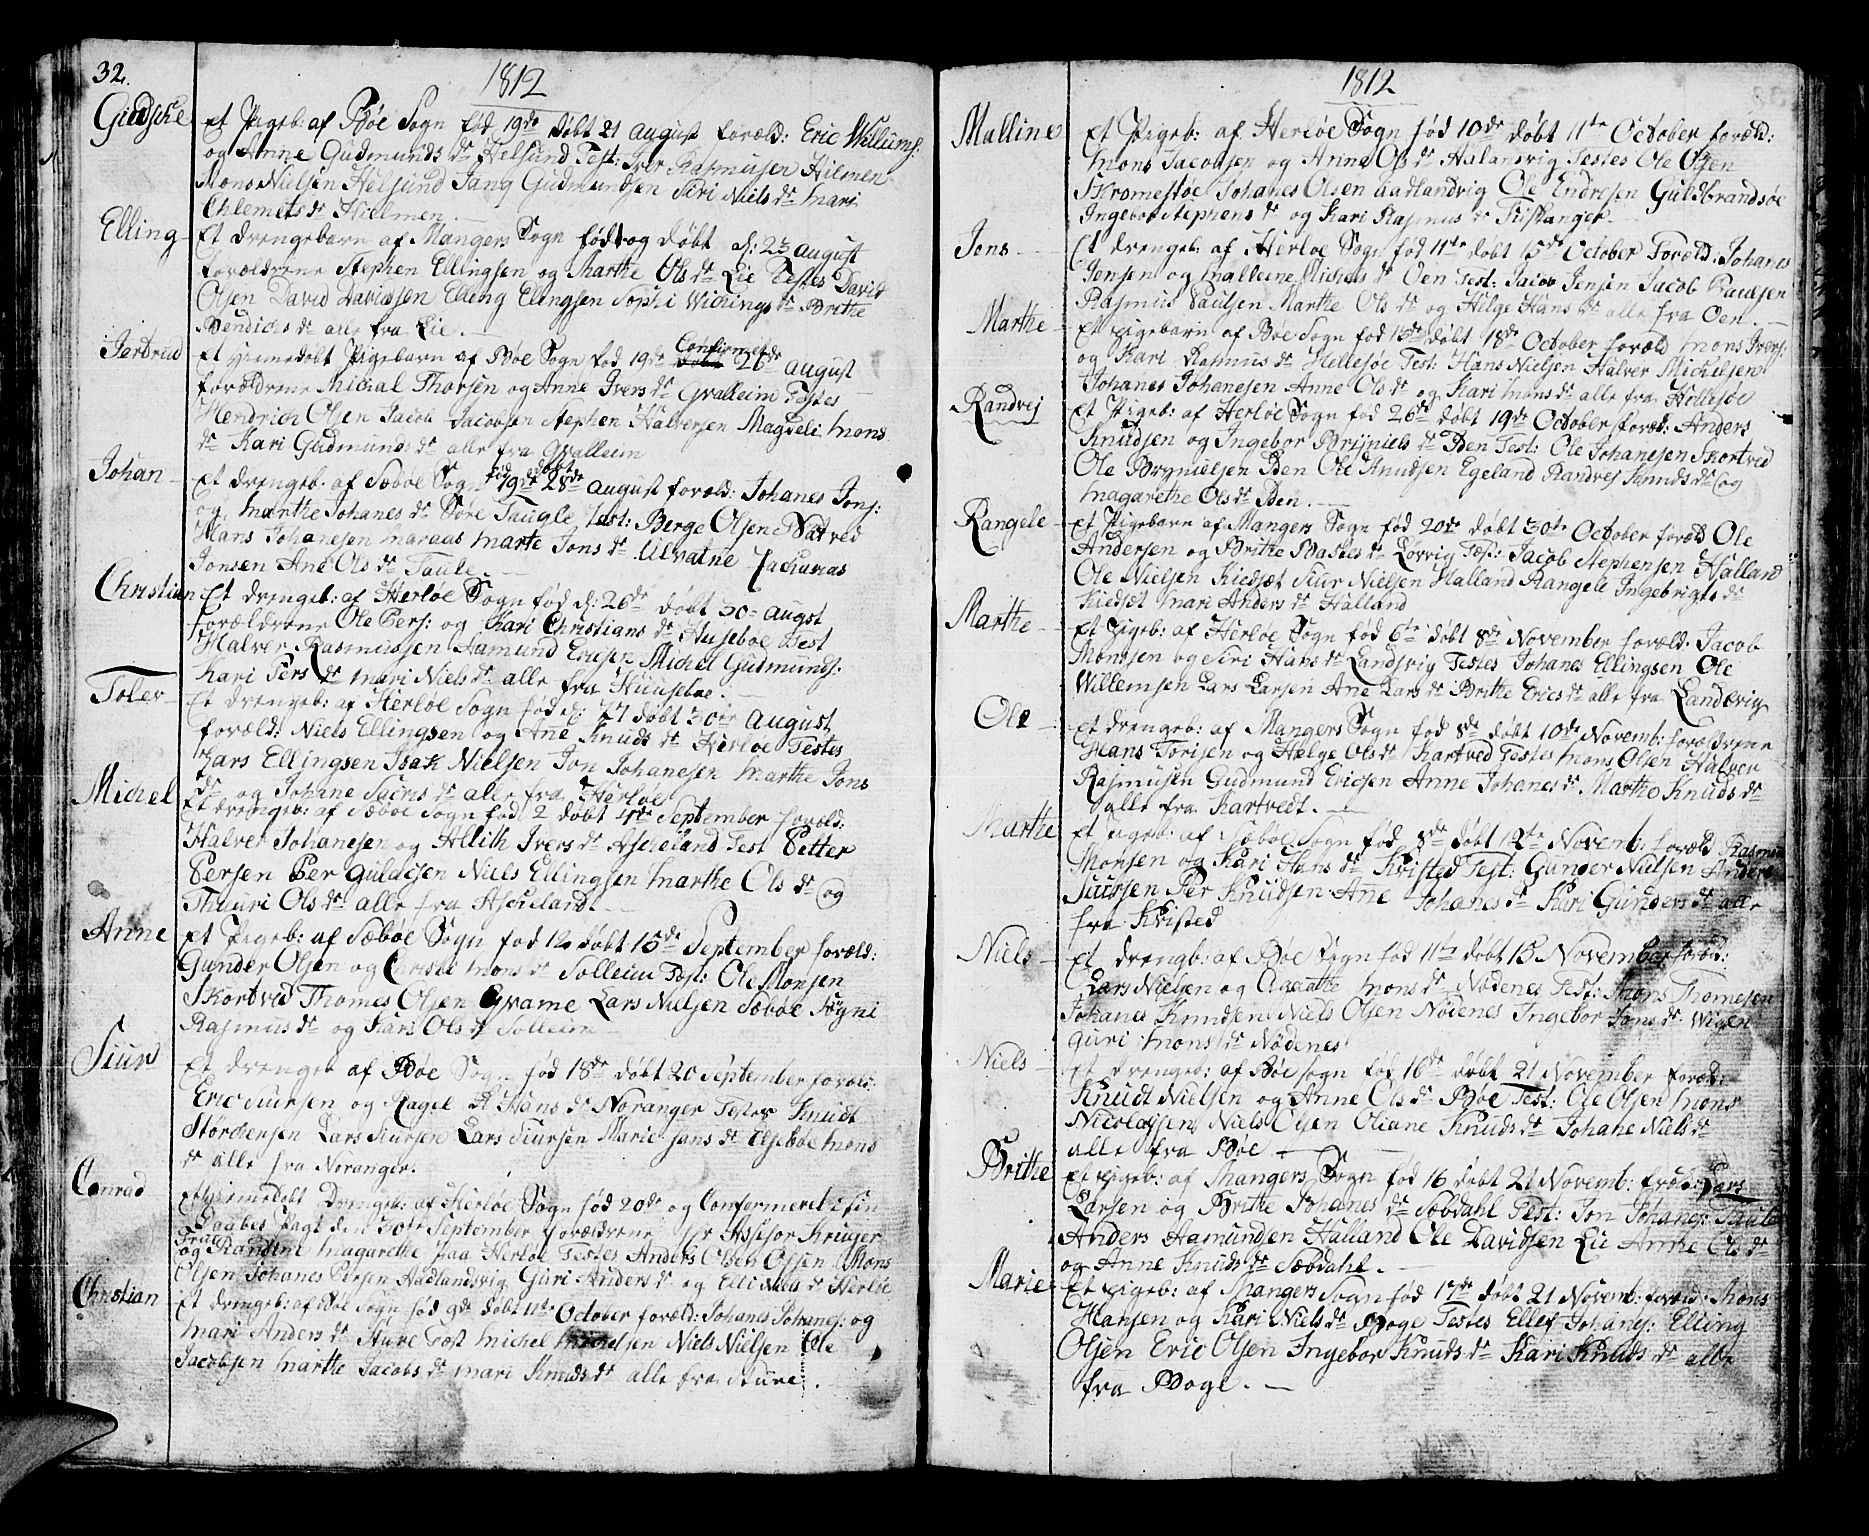 32.
1812
Gudsche et Pigeb: af Bøe Sogn fød 19de døbt 21 August foræld: Eric Willums:
og Anne Gudmunds dr Helsund Test: Iver Rasmusen Hielmen
Mons Nielsen Helsund Jang Gudmundsen Siri Niels dr Mari
Chlemets dr Hielmen.
Elling Et drengebarn af Mangers Sogn født og døbt d: 23 August
forældrene Stephen Ellingsen og Marthe Ols dr Lie Testes David
Olsen David Davidsen Elling Elingsen Sophi Wichings dr Brithe
Bendichs dr alle fra Lie.
Jertrud et hiemedøbt Pigebarn af Bøe Sogn fød 19de Confirmet 26de August
forældrene Michal Thorsen og Anne Ivers dr Qvalleim Testes
Hendrich Olsen Jacob Jacobsen Stephen Halversen Magdeli Mons
dr Kari Gudmunds dr alle fra Qvalleim
Johan Et drengeb: af Sæbøe Sogn fød 19de døbt 28de August foræld: Johanes Jons:
og Marthe Johanes dr Søre Taugle Test: Berge Olsen Natved
Hans Johanesen Maraas Marte Jons dr Ulvatne Zacharias
Jonsen Ane Ols dr Taule.
Christian Et drengeb: af Herløe Sogn fød d: 26de døbt 30 Augst
forældrene Ole Pers: og Kari Christians dr Husebøe Test
Halver Rasmussen Hamund Ericsen Michel Gudmunds:
Kari Pers dr Mari Niels dr alle fra Huusebøe.
Tolev Et drengeb: af Herløe Sogn fød d: 27 døbt 30te August
foræld: Niels Ellingsen og Ane Knuds dr Herløe Testes
Lars Ellingsen Isak Nielsen Jon Johanesen Marthe Jons
dr og Johane Siurs dr alle fra Herløe
Michel Et drengeb: af Sæbøe Sogn fød 2 døbt 4te September foræld:
Halver Johanesen og Allith Ivers dr Ascheland Test Petter
Persen Per Guldesen Niels Ellingsen Marthe Ols dr og
Thuuri Ols dr alle fra Ascheland.
Anne et Pigeb: af Sæbøe Sogn fød 12 døbt 15de September foræld:
Gunder Olsen og Christi Mons dr Solleim Test: Ole Monsen
Skortved Thomes Olsen Qvame Lars Nielsen Sæbøe Røgni
Rasmus dr og Kari Ols dr Solleim
Siur Et drengeb af Bøe Sogn fød 18de døbt 20 September foræld:
Eric Siursen og Ragel Hans dr Noranger Testes Knudt
Storchersen Lars Siursen Lars Siursen Marie Jans dr Elsebøe Mons
dr alle fra Noranger.
Conrad et hiemedøbt Drengeb: af Herløe Sogn fød 20de og Confermeret i sin
Daabes Pagt den 30te September forældrene Hr Assesor Krüger
og Frau Kandine Magarethe paa Herløe Testes Anders Olsen Olsen Mons
Olsen Johanes Persen Aadlandsvig Guri Anders dr og Elli Niels dr Herløe
Christian Et drengeb: af Bøe Sogn fød 9de døbt 11te October foræld: Johanes Johanes: og
Mari Anders dr Sture Test Michel Michelsen Niels Nielsen Ole
Jacobsen Marthe Jacobs dr Mari Knuds dr alle fra Sture.
1812
Malline Et Pigeb: af Herløe Sogn fød 10de døbt 11te October foræld:
Mons Jacobsen og Anne Ols dr Aalansvig Testes Ole Olsen
Skromestøe Johanes Olsen Aadlandvig Ole Endresen Guldbrandsøe
Ingebor Stephens dr og Kari Rasmus dr Fislanger
Jons Et drengeb: af Herløe Sogn fød 11te døbt 15de October Foræld: Johanes
Jensen og Malleene Michels dr Oen Test: Jacob Jensen Jacob Paulsen
Rasmus Paulsen Marthe Ols dr og Helge Hans dr alle fra Oen.
Marthe Et Pigebarn af Bøe Sogn fød 15de døbt 18de October foræld Mons Ivers:
og Kari Rasmus dr Hellesøe Test: Hans Nielsen Halver Michelsen
Johanes Johanesen Anne Ols dr og Kari Mons dr alle fra Hellesøe
Randvej et Pigeb: af Herløe Sogn fød 26de døbt 19de October foræld: Anders
Knudsen og Ingebor Brijniels dr Den Test: Ole Johanesen Skortved
Ole Brynielsen Den Ole Knudsen Egeland Randvej Knuds dr og
Magarethe Ols dr Den.
Rangele Et Pigebarn af Mangers Sogn fød 20de døbt 30te October foræld Ole
Andersen og Brithe Bastes dr Lørvig Test: Jacob Stephensen Halland
Ole Nielsen Kiedsæt Siur Nielsen Halland Rangele Ingebrigts dr
Kiedsæt Mari Anders dr Halland
Marthe et Pigeb: af Herløe Sogn fød 6te døbt 8de November foræld: Jacob
Monssen og Siri Hans dr Landsvig Testes Johanes Ellingsen Ole
Willemsen Lars Larsen Ane Lars dr Brithe Erics dr alle fra Landsvig
Ole et drengeb: af Mangers Sogn fød 8de døbt 10de Novemb: forældrene
Hans Torisen og Helge Ols dr Kartved Testes Mons Olsen Halver
Rasmusen Gudmund Ericsen Anne Johanes dr Marthe Knuds dr
alle fra Kartvedt.
Marthe et Pigeb: af Sæbøe Sogn fød 8de døbt 12te Novemb: foræld Rasmus
Monsen og Kari Hans dr Kristed Test: Gunder Nielsen Anders
Siursen Per Knudsen Ane Johanes dr Kari Gunders dr alle
fra Kristed
Niels et drengb: af Bøe Sogn fød 11te døbt 15 November foræld:
Lars Nielsen og Agathe Mons dr Nødenes Test: Mons Thomesen
Johanes Knudsen Niels Olsen Nødenes Ingebor Jens dr Wigen
Guri Mons dr Nødenes
Niels et drengeb: af Bøe Sogn fød 16de døbt 21 November foræld:
Knudt Nielsen og Anne Ols dr Bøe Test: Ole Olsen Mons
Nicolaysen Niels Olsen Oliane Knuds dr Johane Niels dr
alle fra Bøe
Brithe et Pigeb: af Mangers Sogn fød 16 døbt 21 Novemb: foræld: Lars
Larsen og Brithe Johanes dr Sæbdahl Test: Jon Johanes: Taule
Anders Hamundsen Halland Ole Davidsen Lie Anne Ols dr
og Anne Knuds dr Sæbdahl.
Marie Et Pigeb: af Mangers Sogn fød 17de døbt 21 Novemb: foræld: Mons
Hansen og Kari Niels dr Boge Testes Ellef Johanes: Elling
Olsen Eric Olsen Ingebor Knuds dr Kari Knuds dr alle
fra Boge.